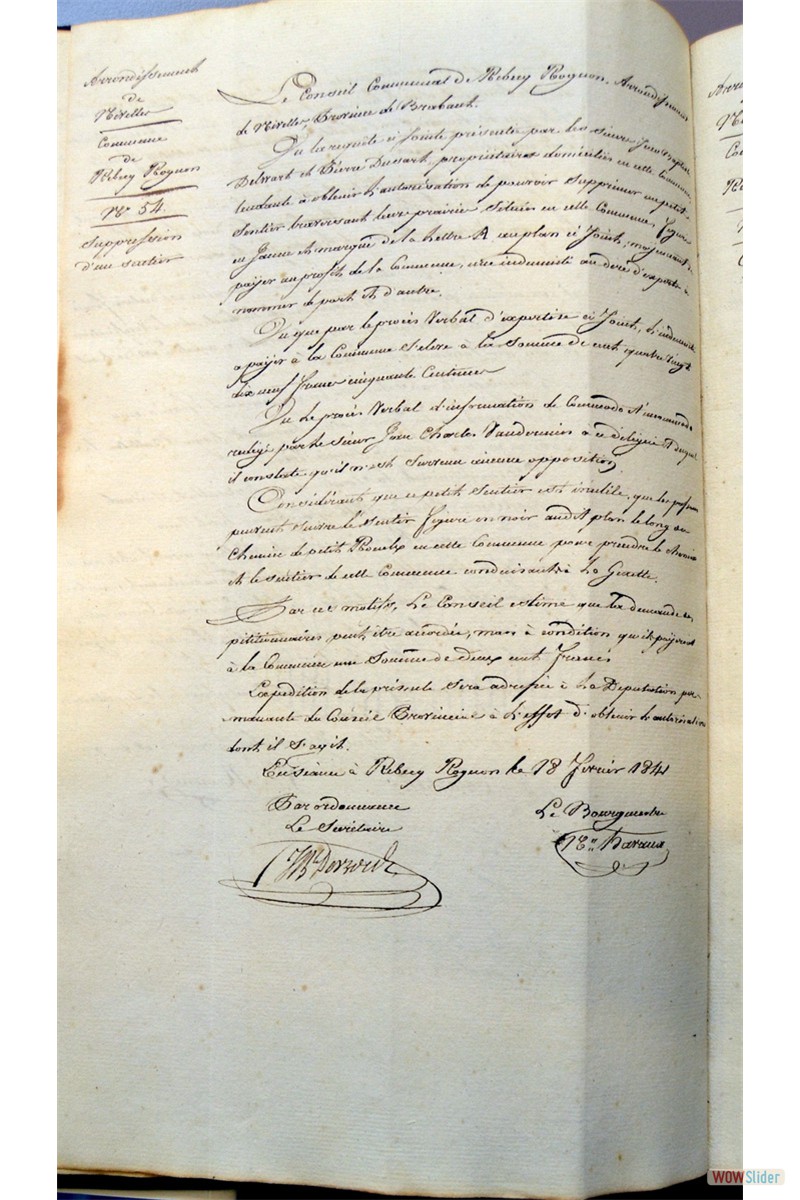 Arrondissement
de
Nivelles
Commune
de
Rebecq Rognon
N° 54.
Suppression
d'un sentier
Le Conseil Communal de Rebecq Rognon, Arrondissement
de Nivelles, Province de Brabant.
Vu la requête ci jointe présentée par les Sieurs Jean Baptiste
Delwart et Pierre Dussart, propriétaires domiciliés en cette Commune,
tendante à obtenir l'autorisation de pouvoir supprimer un petit
Sentier traversant leur prairie située en cette Commune, figuré
en Jaune et marqué de la lettre A au plan ci Joint, moyennant de
payer au profit de la Commune, une indemnité au dire d'experts à
nommer de part et d'autre.
Vu que par le procès Verbal d'expertise ci Joint, l'indemnité
a payer à la Commune s'elève a la Somme de cent quatre vingt
dix neuf francs cinquante Centimes
Vu le procès Verbal d'information de Commodo et incommodo
rédigé par le Sieur Jean Charles à ce délégué et duquel
il constate qu'il n'est survenu aucune opposition.
Considérant que ce petit Sentier est inutile, que les personnes
peuvent suivre le Sentier figuré en noir audit plan le long du
Chemin de petit Rœulx en cette Commune pour prendre le chemin
et le sentier de cette Commune conduisant à La Genette.
Par ces motifs, Le Conseil estime que la demande des
pétitionnaires peut être accordée, mais à condition qu'ils payeront
à la Commune une Somme de deux cent francs
Expedition de la présente Sera adressée à La Députation per-
manente du Conseil Provincial à l'effet d'obtenir l'autorisation
dont il s'agit.
En séance à Rebecq Rognon le 18 fevrier 1841
Par ordonnance
Le Bourgmestre
Le Secrétaire
WOWSlider